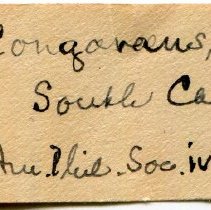 Congaraeus,
South Ca
Am. Phil. Soc. iv